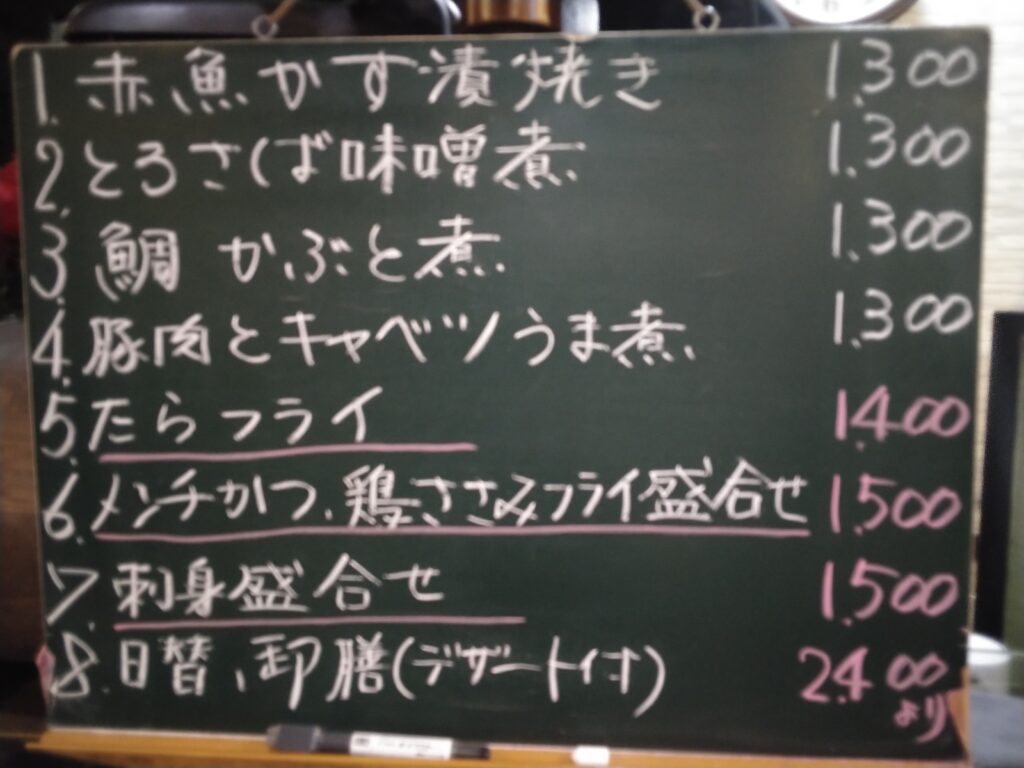 1. 赤魚かす漬焼き 1.300
2. とろさば味噌煮 1.300
3. 鯛 かぶと煮 1.300
4. 豚肉とキャベツうま煮 1.300
5. たらフライ 1.400
6. メンチかつ、鶏ささみフライ盛合せ 1.500
7. 刺身盛合せ 1.500
8. 日替、卸膳(デザート付) 2.400
より